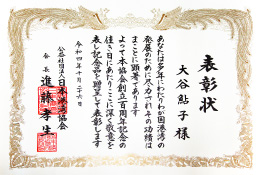 表彰状
大谷鮎子様
あなたは多年にわたりわが国港湾の
発展のために尽力されその功績は
まことに顕著であります
よって本協会創立百周年記念の
佳き日にあたりここに深く敬意を
表し記念品を贈呈して表彰します
令和四年十月二十六日
公益社団法人日本港湾協会
会長 進藤孝生